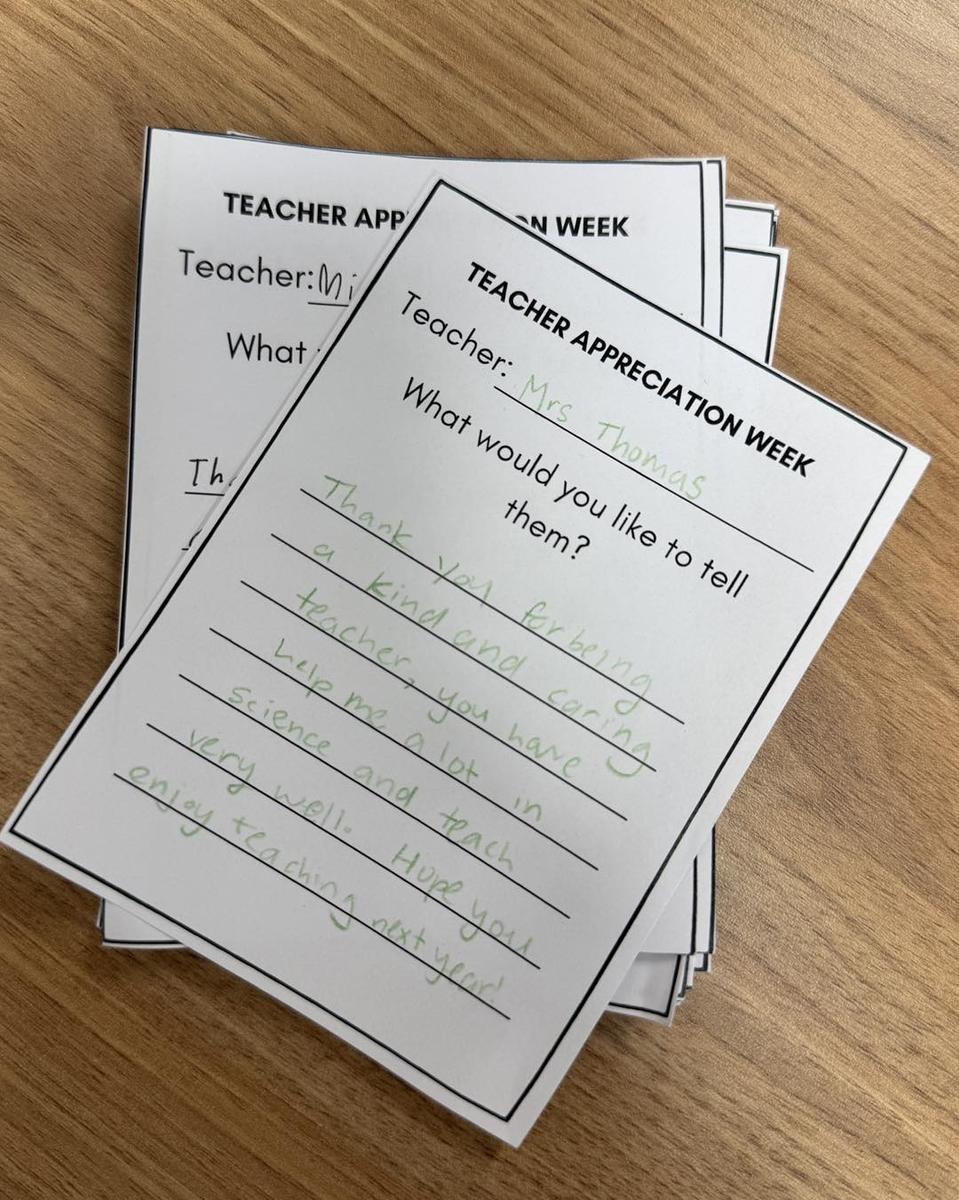 TEACHER APPRECIATION WEEK
Teacher: Mrs Thomas
What would you like to tell
them?
Thank you for being
a kind and caring
teacher, you have
help me a lot in
science and teach
very well. Hope you
enjoy teaching next year!
TEACHER APP ON WEEK
Teacher: Mi
What
Th